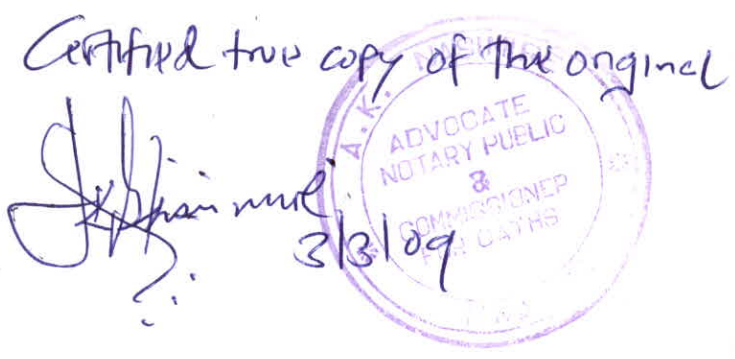 Certified true copy of the original
A. K.
ADVOCATE
NOTARY PUBLIC
&
COMMISSIONER
FOR OATHS
3/3/09